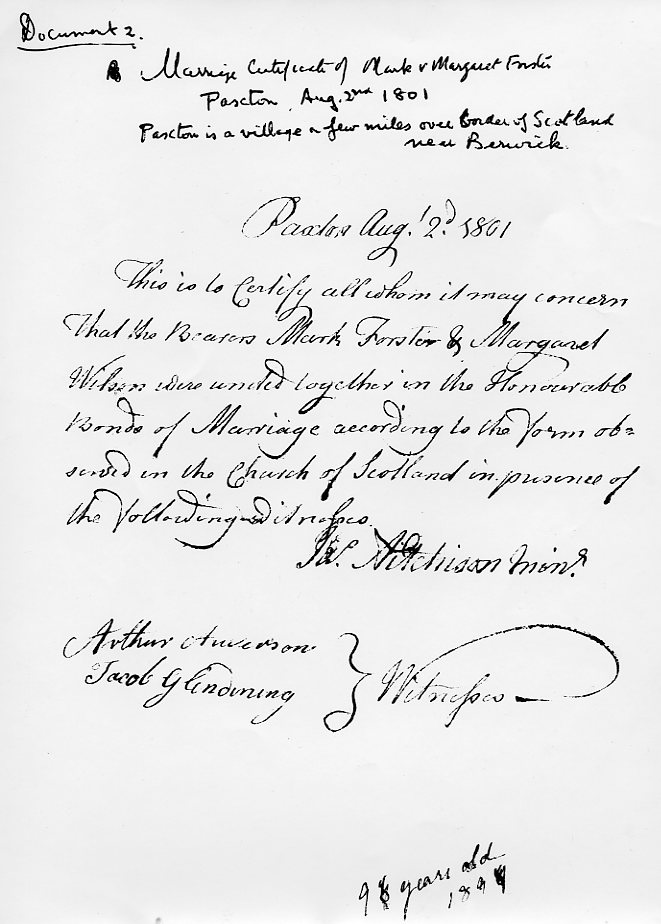 Document 2.
Marriage Certificate of Mark & Margaret Forster
Paxton, Aug. 2nd 1801
Paxton is a village a few miles over border of Scotland
near Berwick.
Paxton Augt 2d 1801
This is to Certify all whom it may concern
That the Bearers Mark Forster & Margaret
Wilson were united together in the Honourable
Bonds of Marriage according to the form ob=
served in the Church of Scotland in presence of
the following witnesses.
Jas. Aitchison Minr.
Arthur Anderson
Jacob Glendining } Witnesses
years old